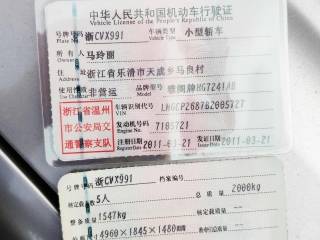 中华人民共和国机动车行驶证
Vehicle License of the People's Republic of China
号牌号码 浙CVX991 车辆类型 小型轿车
Plate No. Vehicle Type
所有人 马玲丽
Owner
住址 浙江省乐清市天成乡马良村
Address
使用性质 非营运 品牌型号 雅阁牌HG7241AB
浙江省温州
市公安局交
通警察支队
车辆识别代号
VIN
发动机号码 7105721
Engine No.
注册日期 2011-03-21 发证日期 2011-03-21
Register Date Issue Date
号牌号码 浙CVX991 档案编号
核定载人数 5人 总质量 2000kg
整备质量 1547kg 核定载质量 --
外廓尺寸 4960×1845×1480